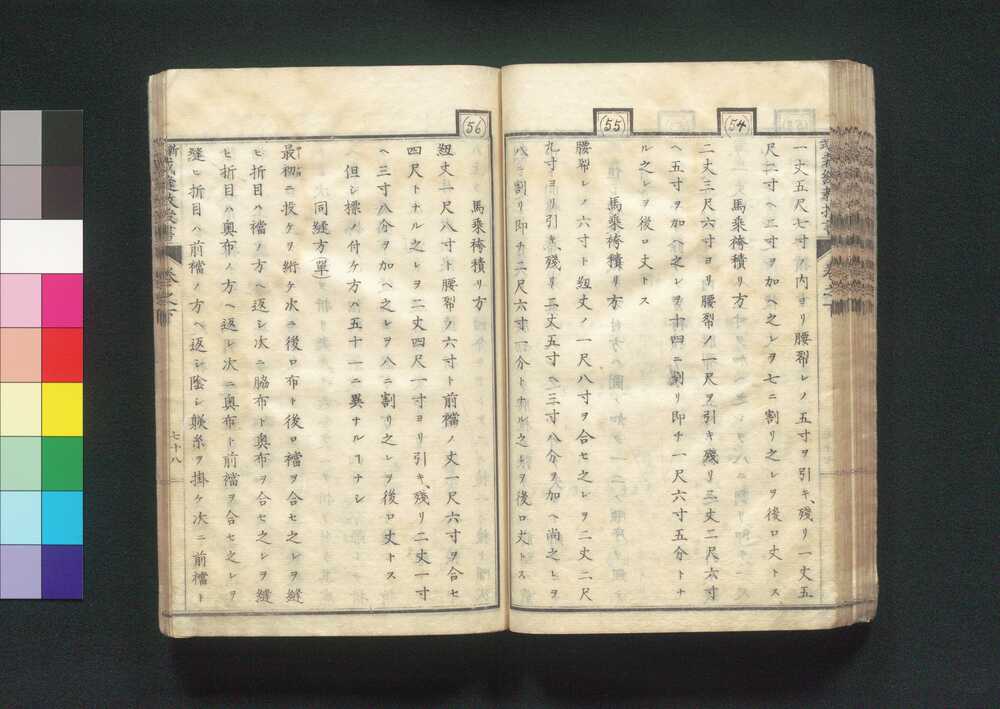 一丈五尺七寸ノ内ヨリ腰剪レノ五寸ヲ引キ、残リ一丈五
尺二寸ヘ三寸ヲ加ヘ之レヲ七ニ割リ之レヲ後ロ丈トス
(54)
馬乘袴積リ方
二丈三尺六寸ヨリ腰剪ノ一尺ヲ引キ残リ二丈二尺六寸
ヘ五寸ヲ加ヘ之レヲ十四ニ割リ即チ一尺六寸五分トナ
ル之レヲ後ロ丈トス
(55)
馬乘袴積リ方
腰剪レノ六寸ト紐丈ノ一尺八寸ヲ合セ之レヲ二丈二尺
九寸ヨリ引キ、残リ二丈五寸ヘ三寸八分ヲ加ヘ尚之レヲ
八ニ割リ即チ二尺六寸一分トナル之レヲ後ロ丈トス
(56)
馬乘袴積リ方
紐丈一尺八寸ト腰剪ノ六寸ト前襠ノ丈一尺六寸ヲ合セ
四尺トナル之レヲ二丈四尺一寸ヨリ引キ、残リ二丈一寸
ヘ三寸八分ヲ加ヘ之レヲ八ニ割リ之レヲ後ロ丈トス
但シ標ノ付ケ方ハ五十一ニ異ナルヿナシ
同縫方(單)
最初ニ投ケヲ絎ケ次ニ後ロ布ト後ロ襠ヲ合セ之レヲ縫
ヒ折目ハ襠ノ方ヘ返シ次ニ脇布ト奥布ヲ合セ之レヲ縫
ヒ折目ハ奥布ノ方ヘ返シ次ニ奥布ト前襠ヲ合セ之レヲ
縫ヒ折目ハ前襠ノ方ヘ返シ陰シ躾糸ヲ掛ケ次ニ前襠ト
卷之下
七十八